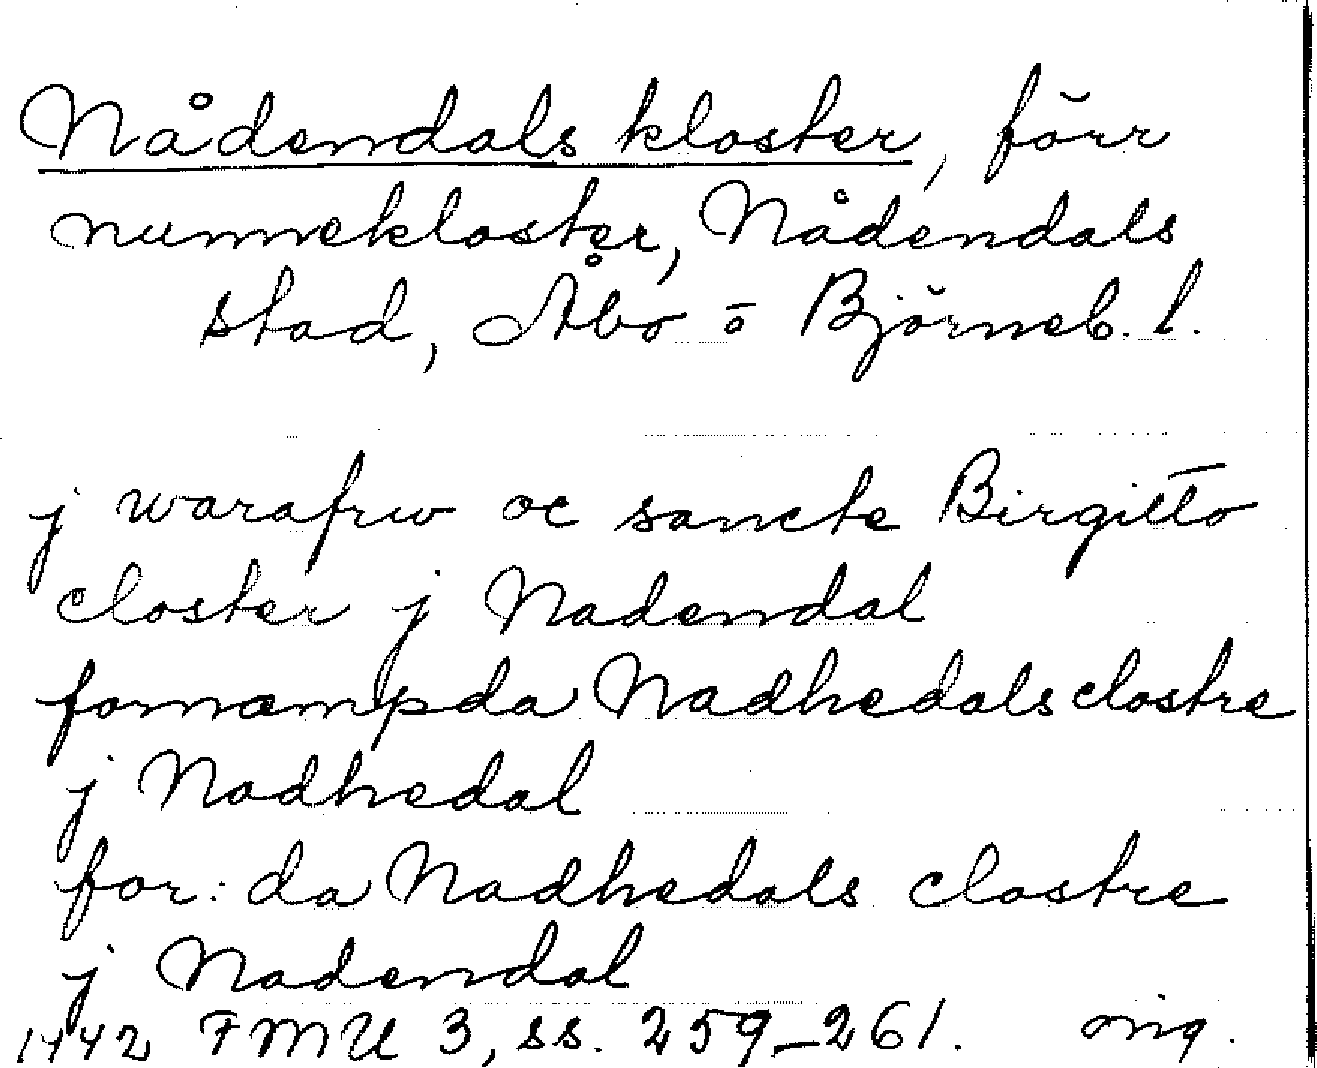 Nådendals kloster, förr
nunnekloster, Nådendals
stad, Åbo o Björneb. l.
j warafrw oc sancte Birgitto
closter j Nadendal
fornæmpda Nadhedals clostre
j Nadhedal
for: da Nadhedals clostre
j Nadendal
1442 FMU 3, ss. 259–261. orig.